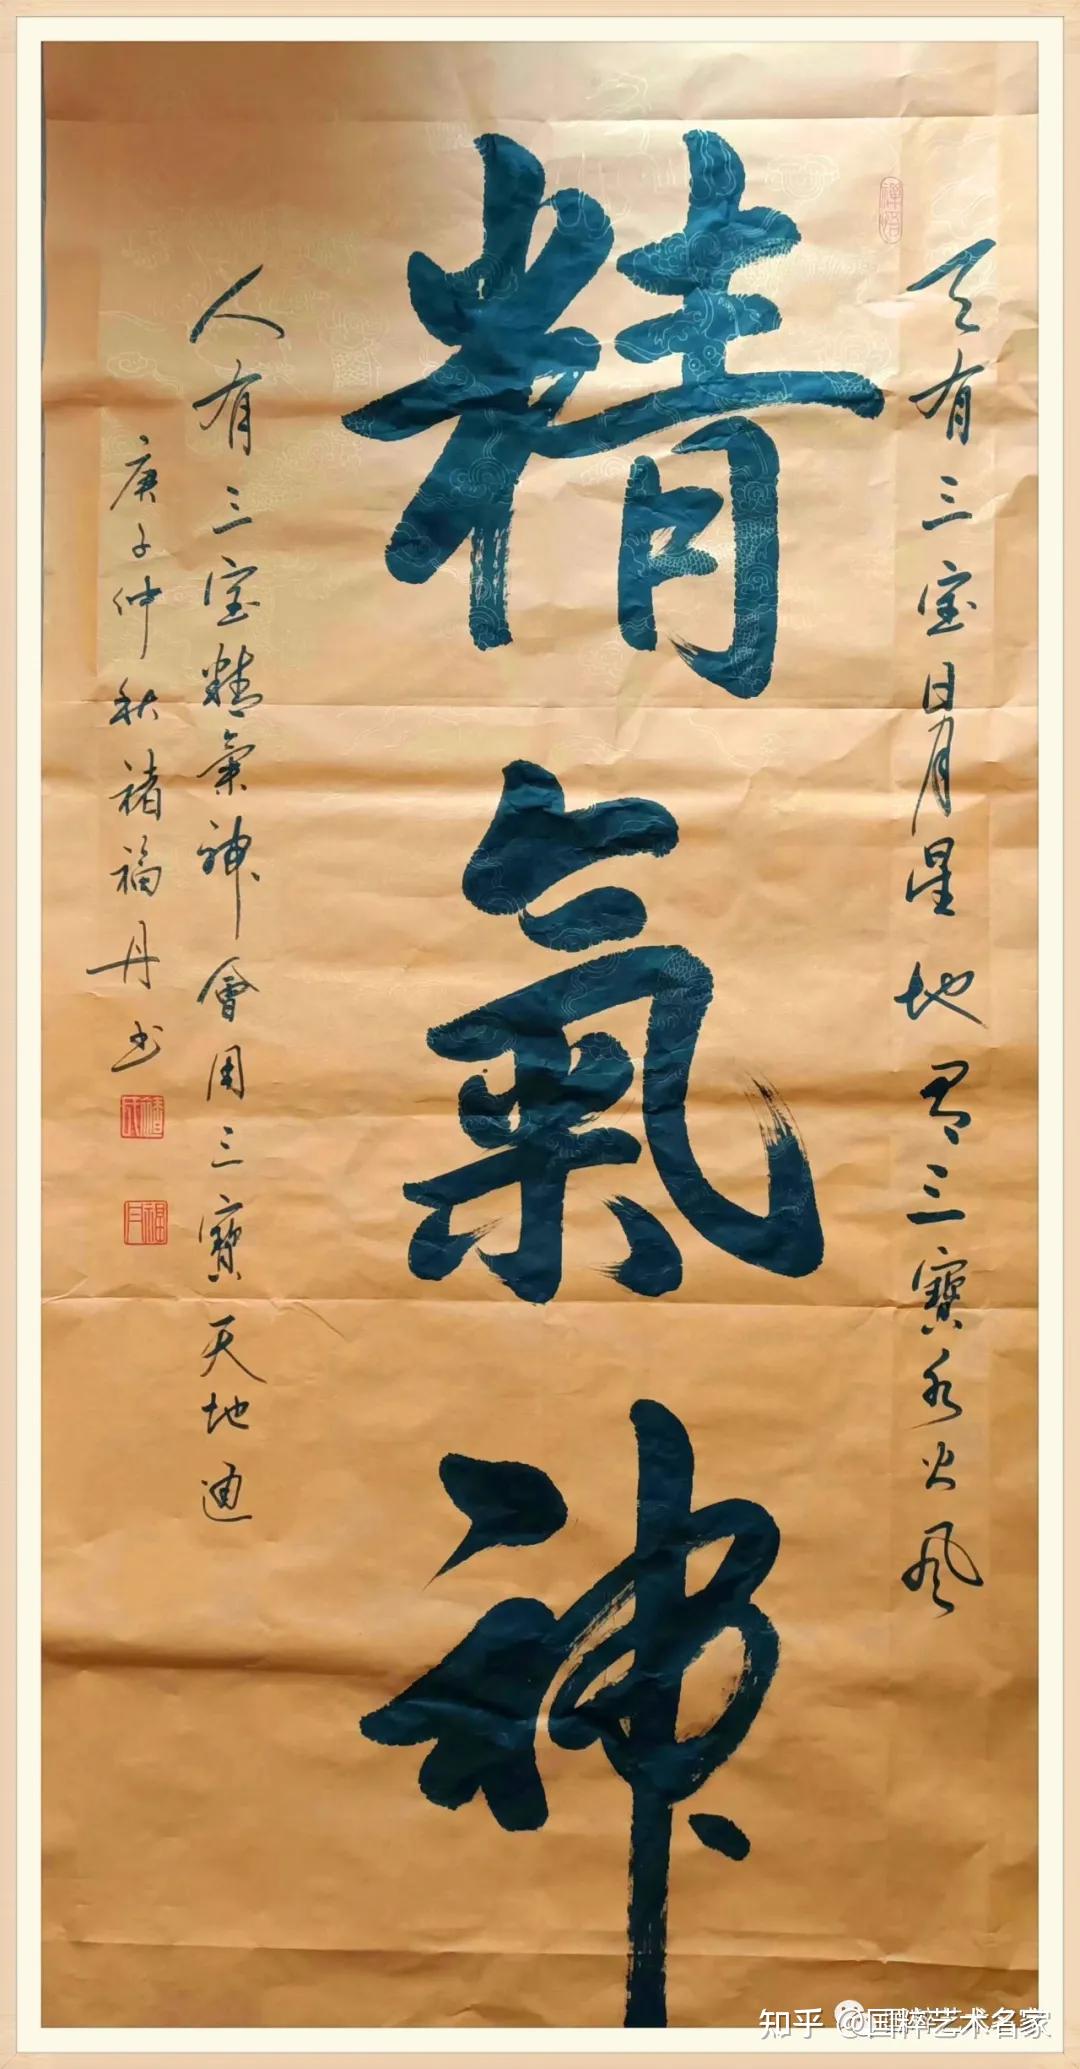 天有三宝日月星地有三寶水火風
精氣神
人有三宝精氣神會用三寶天地通
庚子仲秋褚福丹书
禅悟
知乎 @国粹艺术名家